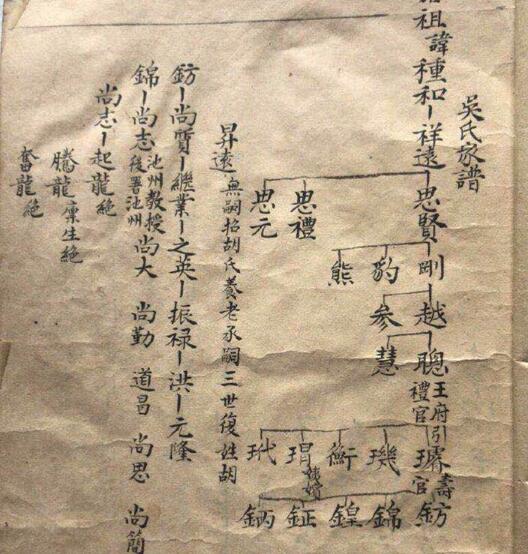 吳氏家譜
祖諱種和祥遠思賢剛越聰王府引禮官璿壽官鈁
豹參慧璣錦
熊衡鍠
思禮珇鉦
思元玳鈵
昇遠無嗣招胡氏養老承嗣三世復姓胡
鈁尚質繼業之英振禄洪元隆
錦尚志池州教授後署池州尚大 尚勤 道昌 尚思 尚簡
尚志起龍絕
騰龍廩生絕
奮龍絕